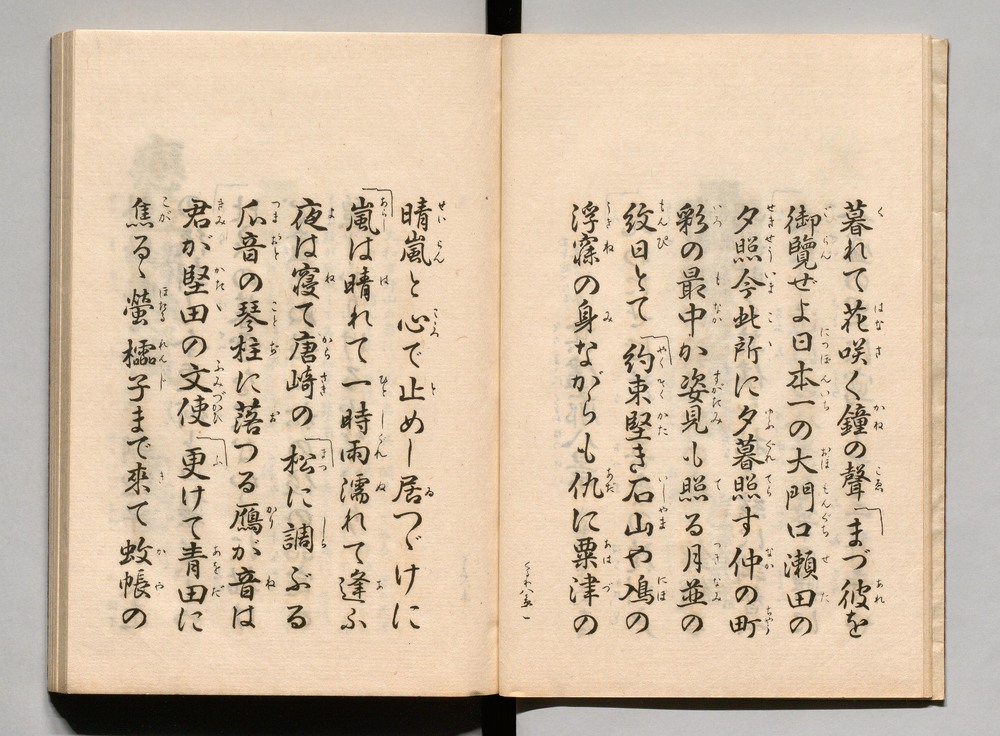 暮れて花咲く鐘の聲まづ彼を
御覽ぜよ日本一の大門口瀬田の
夕照今此所に夕暮照す仲の町
彩の最中か姿見も照る月並の
紋日とて約束堅き石山や鳰の
浮寐の身ながらも仇に粟津の
晴嵐と心で止めし居つゞけに
嵐は晴れて一時雨濡れて逢ふ
夜は寝て唐崎の松に調ぶる
爪音の琴柱に落つる鴈が音は
君が堅田の文使更けて青田に
焦るゝ螢櫺子まで來て蚊帳の